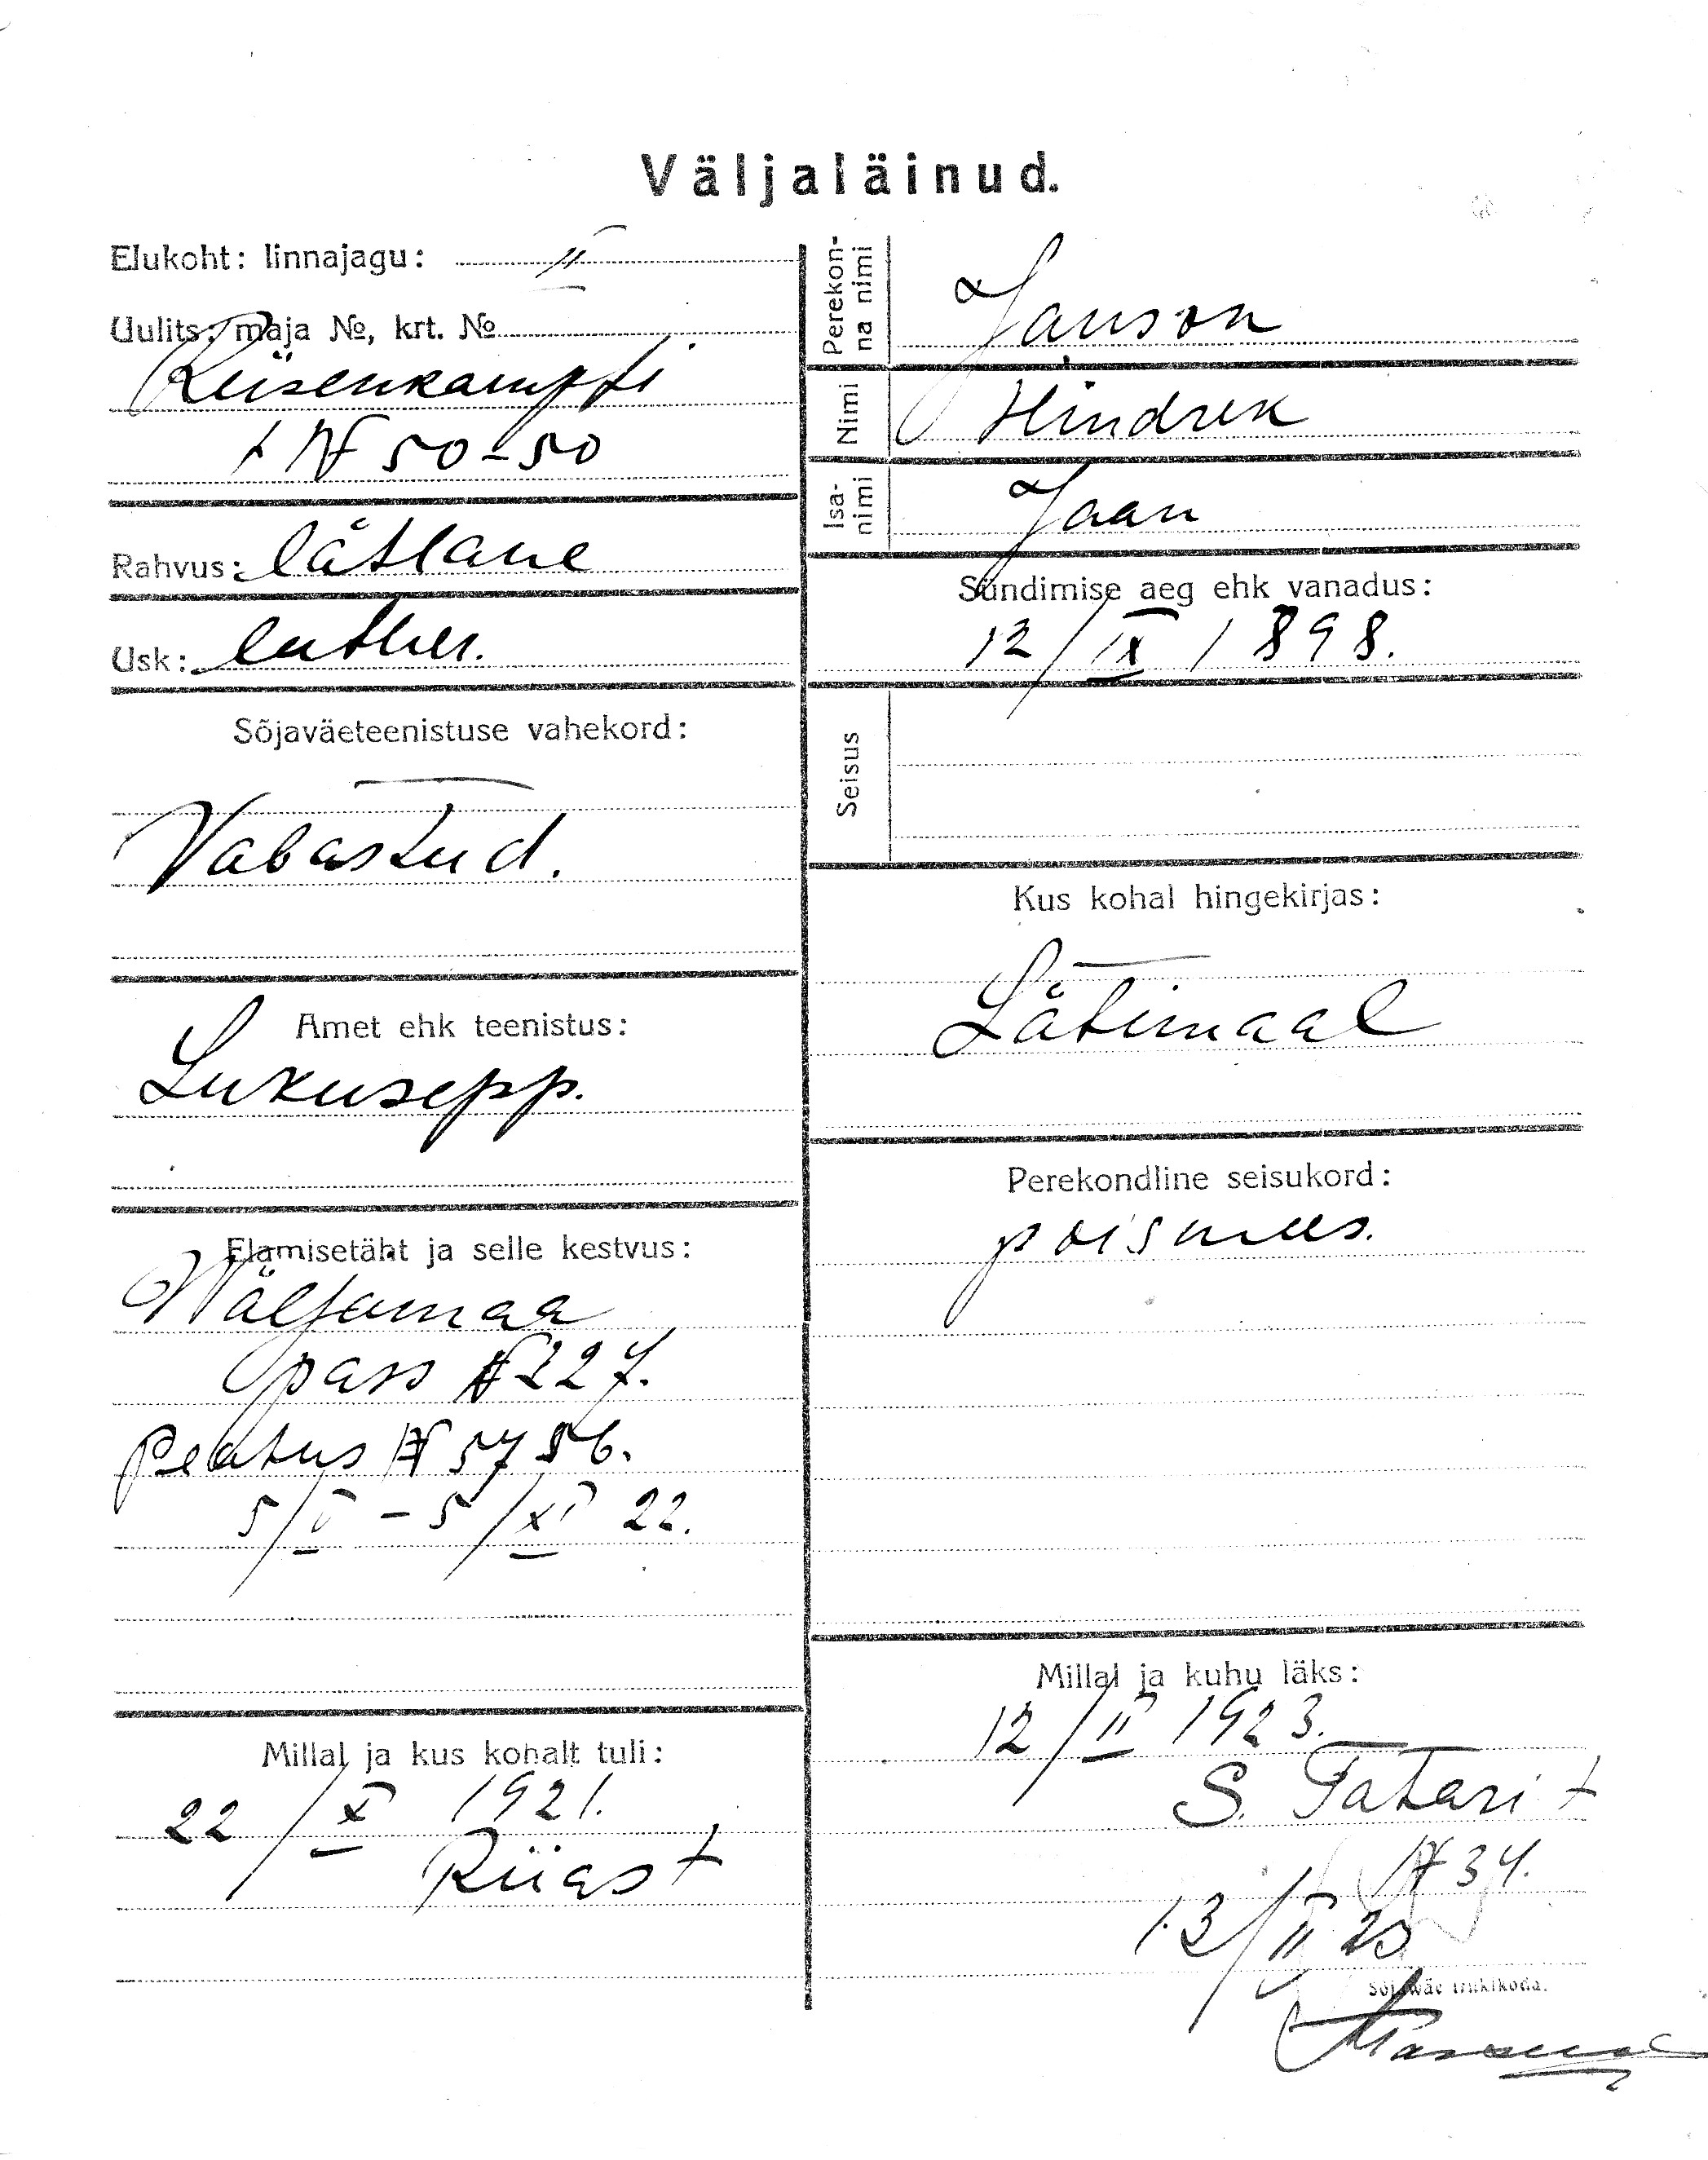 Väljaläinud.
Elukoht: linnajagu: II
Uulits, maja №, krt. №
Reisenkampfi
t № 50-50
Rahvus: lätlane
Usk: luther.
Sõjaväeteenistuse vahekord:
Vabastud.
Amet ehk teenistus:
Lukusepp.
Elamisetäht ja selle kestvus:
Wäljamaa
pass № 227.
Peatus № 5756.
5/V - 5/XI 22.
Millal ja kus kohalt tuli:
22/X 1921.
Riiast
Perekon-
na nimi
Janson
Nimi
Hindrek
Isa-
nimi
Jaan
Sündimise aeg ehk vanadus:
12/IX 1898.
Seisus
Kus kohal hingekirjas:
Lätimaal
Perekondline seisukord:
poismees.
Millal ja kuhu läks:
12/II 1923.
S. Tatari t
№ 34.
13/II 23
Sõjawäe trükikoda.